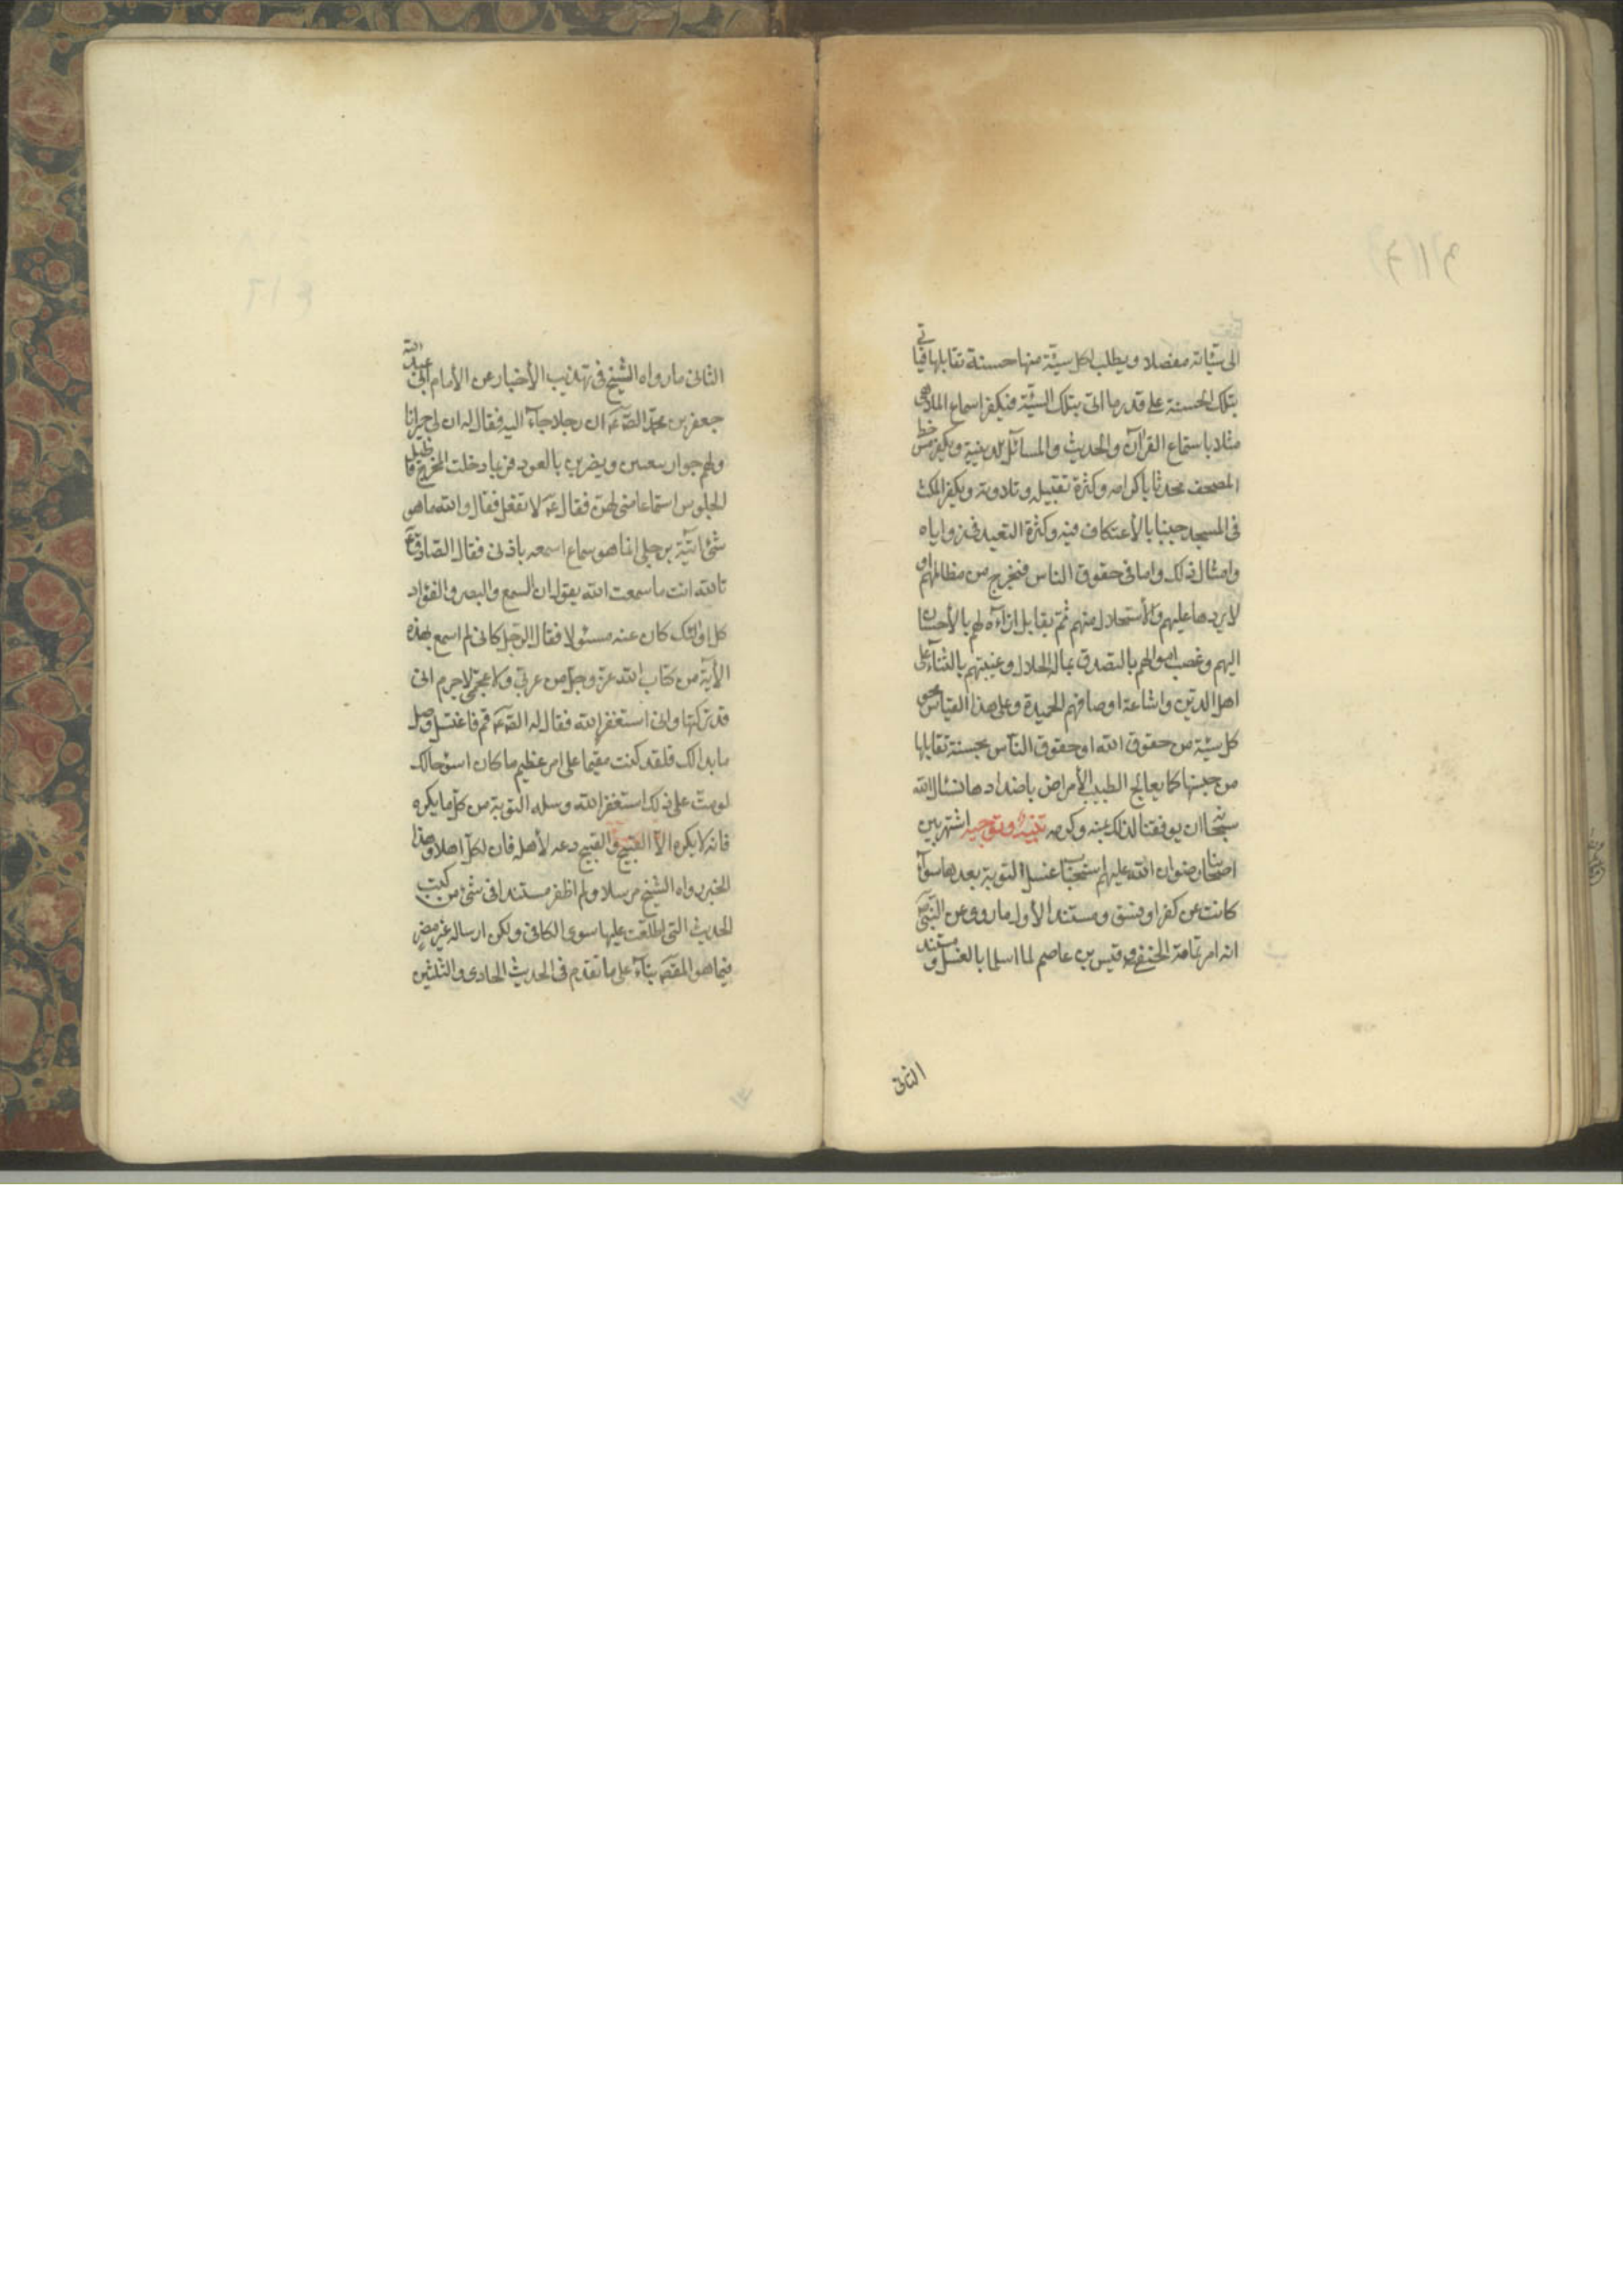 الى سيّئاته مفصلا ويطلب لكل سيئة منها حسنة تقابلها فياتى
بتلك الحسنة على قدر ما اتى بتلك السيئة فيكفر استماع الملاهى
مثلا باستماع القرآن والحديث والمسائل الدينية ويكفر مس خط
المصحف محدثا باكرامه وكثرة تقبيله وتلاوته ويكفر المكث
فى المسجد جنبا بالأعتكاف فيه وكثرة التعبد فى زواياه
وامثال ذلك واما فى حقوق الناس فيخرج من مظالمهم او
لا بردها عليهم والأستحلال منهم ثم يقابل ايذاءه لهم بالأحسان
اليهم وغصب اموالهم بالتصدق بماله الحلال وغيبتهم بالثناء على
اهل الدين واشاعة اوصافهم الحميدة وعلى هذا القياس محو
كل سيئة من حقوق الله او حقوق الناس بحسنة تقابلها
من جنسها كما يعالج الطبيب الأمراض باضدادها نسئال الله
سبحانه ان يوفقنا لذلك بمنه وكرمه تنبيه وتوجيه اشتهر بين
اصحابنا رضوان الله عليهم استحباب غسل التوبة بعدها سواء
كانت عن كفر او فسق ومستند الأول ما روى عن النبى ص
انه امر ثمامة الحنفى وقيس بن عاصم لما اسلما بالغسل ومستند
الثانى
الثانى ما رواه الشيخ فى تهذيب الأخبار عن الأمام ابى عبد الله
جعفر بن محمد الصّ عم ان رجلا جاء اليه فقال له ان لى جيرانا
ولهم جوار يتغنين ويضربن بالعود فربما دخلت المخرج فاطيل
الجلوس استماعا منى لهن فقال عم لا تفعل فقال والله ما هو
شئ اتيته برجلى انما هو سماع اسمعه باذنى فقال الصّادق ع
تالله انت ما سمعت الله يقول ان السمع والبصر والفؤاد
كل اولئك كان عنه مسئولا فقال الرجل كانى لم اسمع بهذه
الأية من كتاب الله عز وجل من عربى ولا عجمى لا جرم انى
قد تركتها وانى استغفر الله فقال له الصّ عم قم فاغتسل وصل
ما بدا لك فلقد كنت مقيما على امر عظيم ما كان اسوء حالك
لو مت على ذلك استغفر الله وسله التوبة من كل ما يكره
فانه لا يكره الا القبيح والقبيح دعه لأهله فان لكل اهلا وهذا
الخبر رواه الشيخ مرسلا ولم اظفر مسندا فى شئ من كتب
الحديث التى اطلعت عليها سوى الكافى ولكن ارساله غير مضر
فيما هو المقصّ بناء على ما تقدم فى الحديث الحادى والثلثين